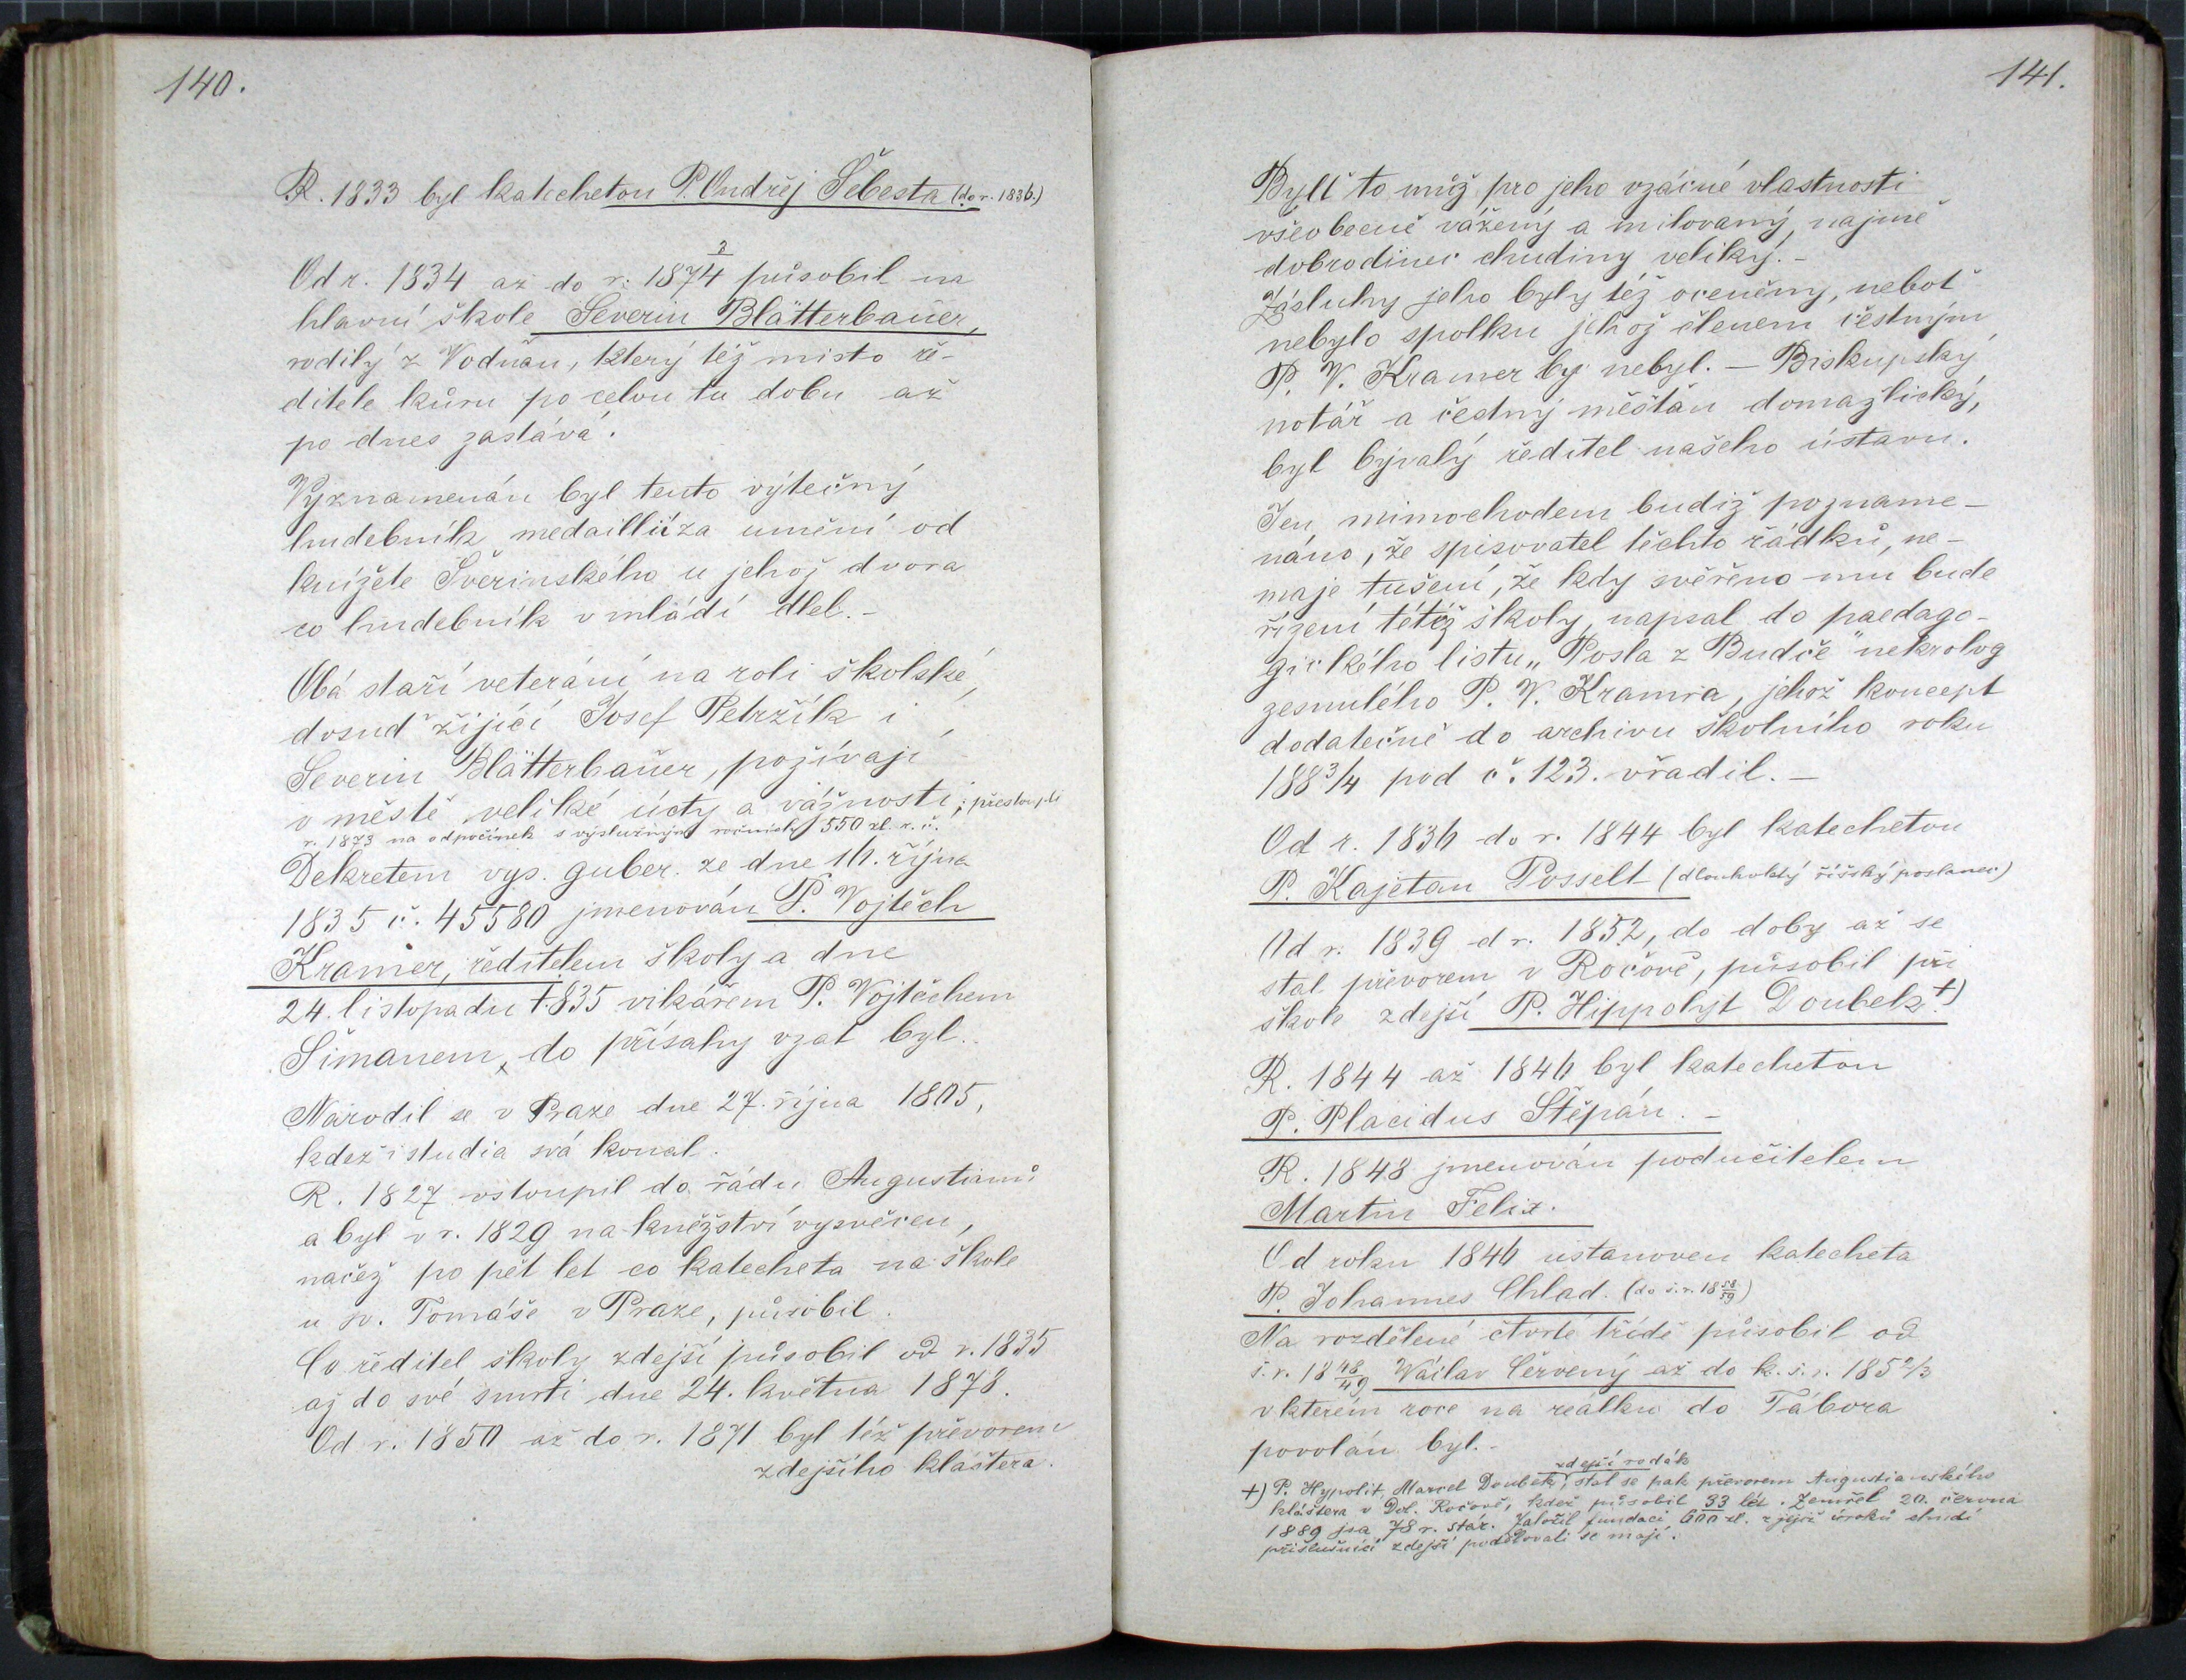 140.
R. 1833 byl katechetou P. Ondřej Šebesta (do r. 1836.)
Od r. 1834 až do r. 187 3/4 působil na
hlavní škole Severin Blätterbauer,
rodilý z Vodňan, který též místo ře-
ditele kůru po celou tu dobu až
po dnes zastává.
Vyznamenán byl tento výtečný
hudebník medaillií za umění od
knížete Šverinského u jehož dvora
co hudebník v mládí dlel. -
Obá staří veteráni na roli školské,
dosud žijící Josef Petržík i
Severin Blätterbauer, požívají
v městě veliké úcty a vážnosti; přestoupli
r. 1873 na odpočinek s výslužným ročních 550 zl. r. č.
Dekretem vys. guber. ze dne 16. října
1835 č. 45580 jmenován P. Vojtěch
Kramer, ředitelem školy a dne
24. listopadu 1835 vikářem P. Vojtěchem
Šimanem, do přísahy vzat byl.
Narodil se v Praze dne 27. října 1805,
kdež i studia svá konal.
R. 1827 vstoupil do řádu Augustianů
a byl v r. 1829 na kněžství vysvěcen,
načež po pět let co katecheta na škole
u sv. Tomáše v Praze, působil.
Co ředitel školy zdejší působil od r. 1835
až do své smrti dne 24. května 1878.
Od r. 1850 až do r. 1871 byl též převorem
zdejšího kláštera.
141.
Bylť to muž pro jeho vzácné vlastnosti
všeobecně vážený a milovaný, najmě
dobrodinec chudiny veliký. -
Zásluhy jeho byly též oceněny, neboť
nebylo spolku jehož členem čestným
P. V. Kramer by nebyl. — Biskupský
notář a čestný měšťan domažlický,
byl bývalý ředitel našeho ústavu.
Jen mimochodem budiž pozname-
náno, že spisovatel těchto řádků, ne-
maje tušení, že kdy svěřeno mu bude
řízení tétéž školy, napsal do paedago-
gického listu „Posla z Budče" nekrolog
zesnulého P. V. Kramra, jehož koncept
dodatečně do archivu školního roku
188 3/4 pod č. 123. vřadil. —
Od r. 1836 do r. 1844 byl katechetou
P. Kajetan Posselt (dlouholetý říšský poslanec)
Od r. 1839 d r. 1852, do doby až se
stal převorem v Ročově, působil při
škole zdejší P. Hippolyt Doubek. +)
R. 1844 až 1846 byl katechetou
P. Placidus Štěpán. -
R. 1848 jmenován podučitelem
Martin Felix.
Od roku 1846 ustanoven katecheta
P. Johannes Chlad. (do š. r. 18 58/59)
Na rozdělené čtvrté třídě působil od
š. r. 18 48/49 Václav Červený až do k. š. r. 185 2/3
v kterém roce na reálku do Tábora
povolán byl. -
zdejší rodák
+) P. Hypolit, Marcel Doubek, stal se pak převorem Augustianského
kláštera v Dol. Ročově, kdež působil 33 let. Zemřel 20. června
1889 jsa 78 r. stár. Založil fundaci 600 zl. z jejíž úroků chudí
příslušníci zdejší podělovati se mají.